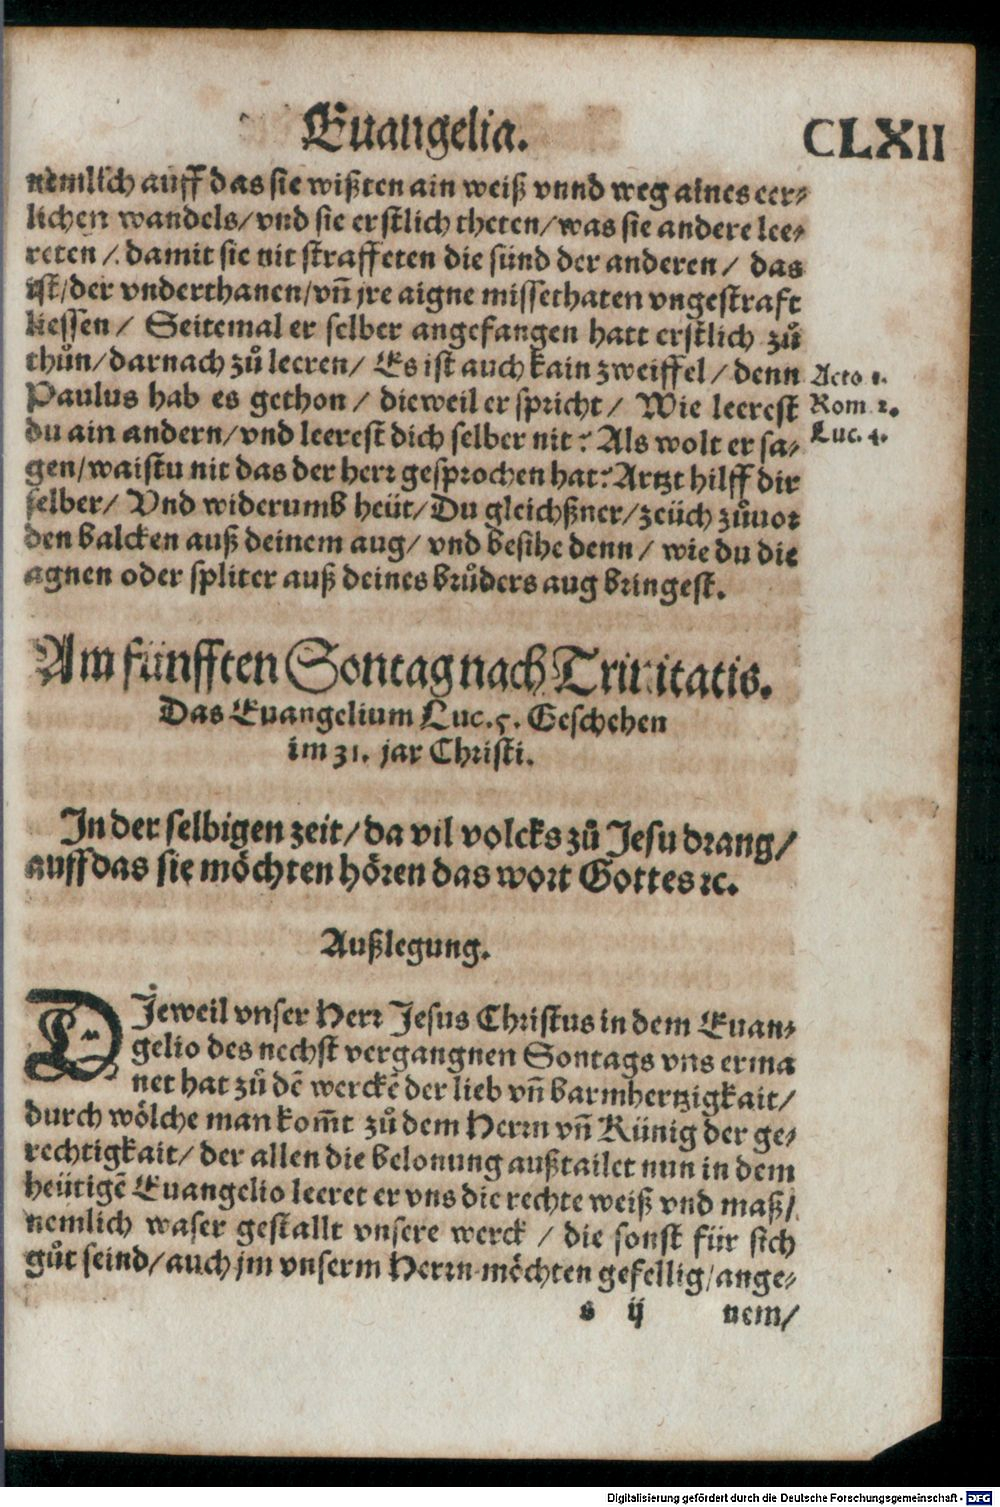 Euangelia. CLXII
nemlich auff das sie wißten ain weiß vnnd weg aines eer⸗
lichen wandels/vnd sie erstlich theten/was sie andere lee⸗
reten/ damit sie nit straffeten die sünd der anderen/ das
ist/der vnderthanen/vñ jre aigne missethaten vngestraft
liessen/ Seitemal er selber angefangen hatt erstlich zů
thůn/darnach zů leeren/ Es ist auch kain zweiffel/ denn
Acto 1.
Paulus hab es gethon/ dieweil er spricht/ Wie leerest
Rom 2.
du ain andern/vnd leerest dich selber nit? Als wolt er sa⸗
Luc. 4.
gen/waistu nit das der herr gesprochen hat? Artzt hilff dir
selber/ Vnd widerumb heüt/Du gleichßner/zeüch zůuor
den balcken auß deinem aug/ vnd besihe denn/ wie du die
agnen oder spliter auß deines brůders aug bringest.
Am fünfften Sontag nach Trinitatis.
Das Euangelium Luc. 5. Geschehen
im 31. jar Christi.
In der selbigen zeit/da vil volcks zů Jesu drang/
auff das sie möchten hören das wort Gottes ꝛc.
Außlegung.
DJeweil vnser Herr Jesus Christus in dem Euan⸗
gelio des nechst vergangnen Sontags vns erma
net hat zů dē werckē der lieb vñ barmhertzigkait/
durch wölche man kom̃t zů dem Herrn vñ Künig der ge⸗
rechtigkait/ der allen die belonung außtailet nun in dem
heütigē Euangelio leeret er vns die rechte weiß vnd maß/
nemlich waser gestallt vnsere werck / die sonst für sich
gůt seind/auch jm vnserm Herrn möchten gefellig/ange⸗
s ij nem/
Digitalisierung gefördert durch die Deutsche Forschungsgemeinschaft - DFG